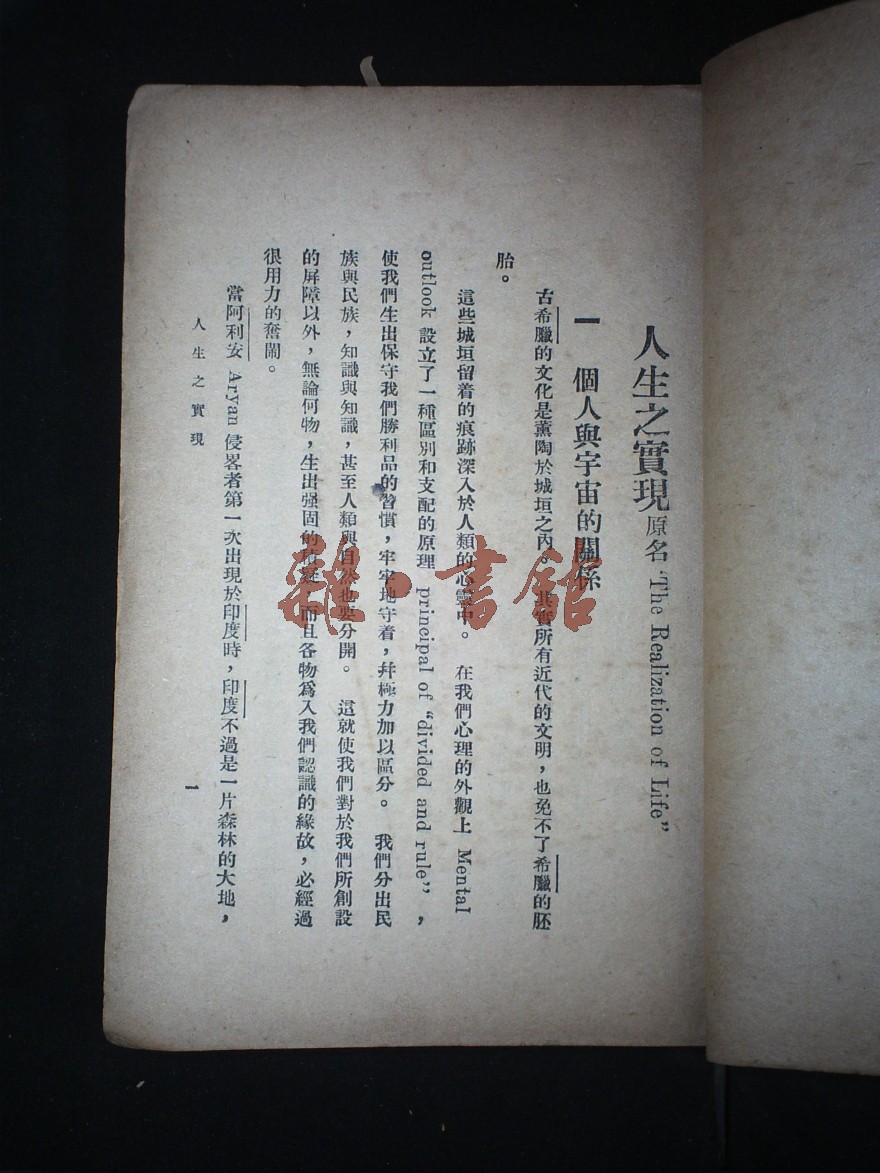 人生之實現 原名 "The Realization of Life"
一 個人與宇宙的關係
古希臘的文化是薰陶於城垣之內。其實所有近代的文明，也免不了希臘的胚
胎。
這些城垣留着的痕跡深入於人類的心靈中。 在我們心理的外觀上 Mental
outlook 設立了一種區別和支配的原理 principal of "divided and rule"，
使我們生出保守我們勝利品的習慣，牢牢地守着，幷極力加以區分。 我們分出民
族與民族，知識與知識，甚至人類與自然也要分開。 這就使我們對於我們所創設
的屏障以外，無論何物，生出强固的 而且各物爲入我們認識的緣故，必經過
很用力的奮鬧。
當阿利安 Aryan 侵畧者第一次出現於印度時，印度不過是一片森林的大地，
人生之實現
一
雜·書館